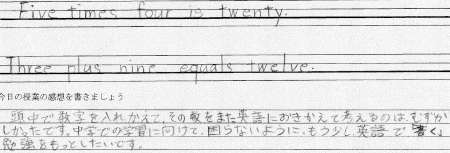 Five times four is twenty.
Three plus nine equals twelve.
今日の授業の感想を書きましょう
頭中で数字を入れかえて、その数をまた英語におきかえて考えるのは、むずか
しかったです。中学での学習に向けて、困らないように、もう少し英語で「書く」
勉強をもっとしたいです。